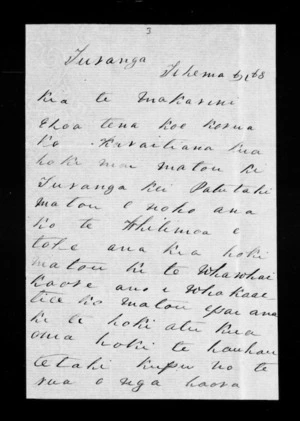 3
Turanga
Tihema 6/68
Kia te Makarini
Ehoa tena koe korua
ko Kuraitiana kua
hoki mai matou ki
Turanga kei Patutahi
matou e noho ana
ko te Whitimoa e
tohe ana kia hoki
matou ki te Whawhai
kaore ano i Whakaae
tia ko matou e pai ana
ki te hoki atu kua
oma hoki te hauhau
tetahi kupu no te
rua o nga haora